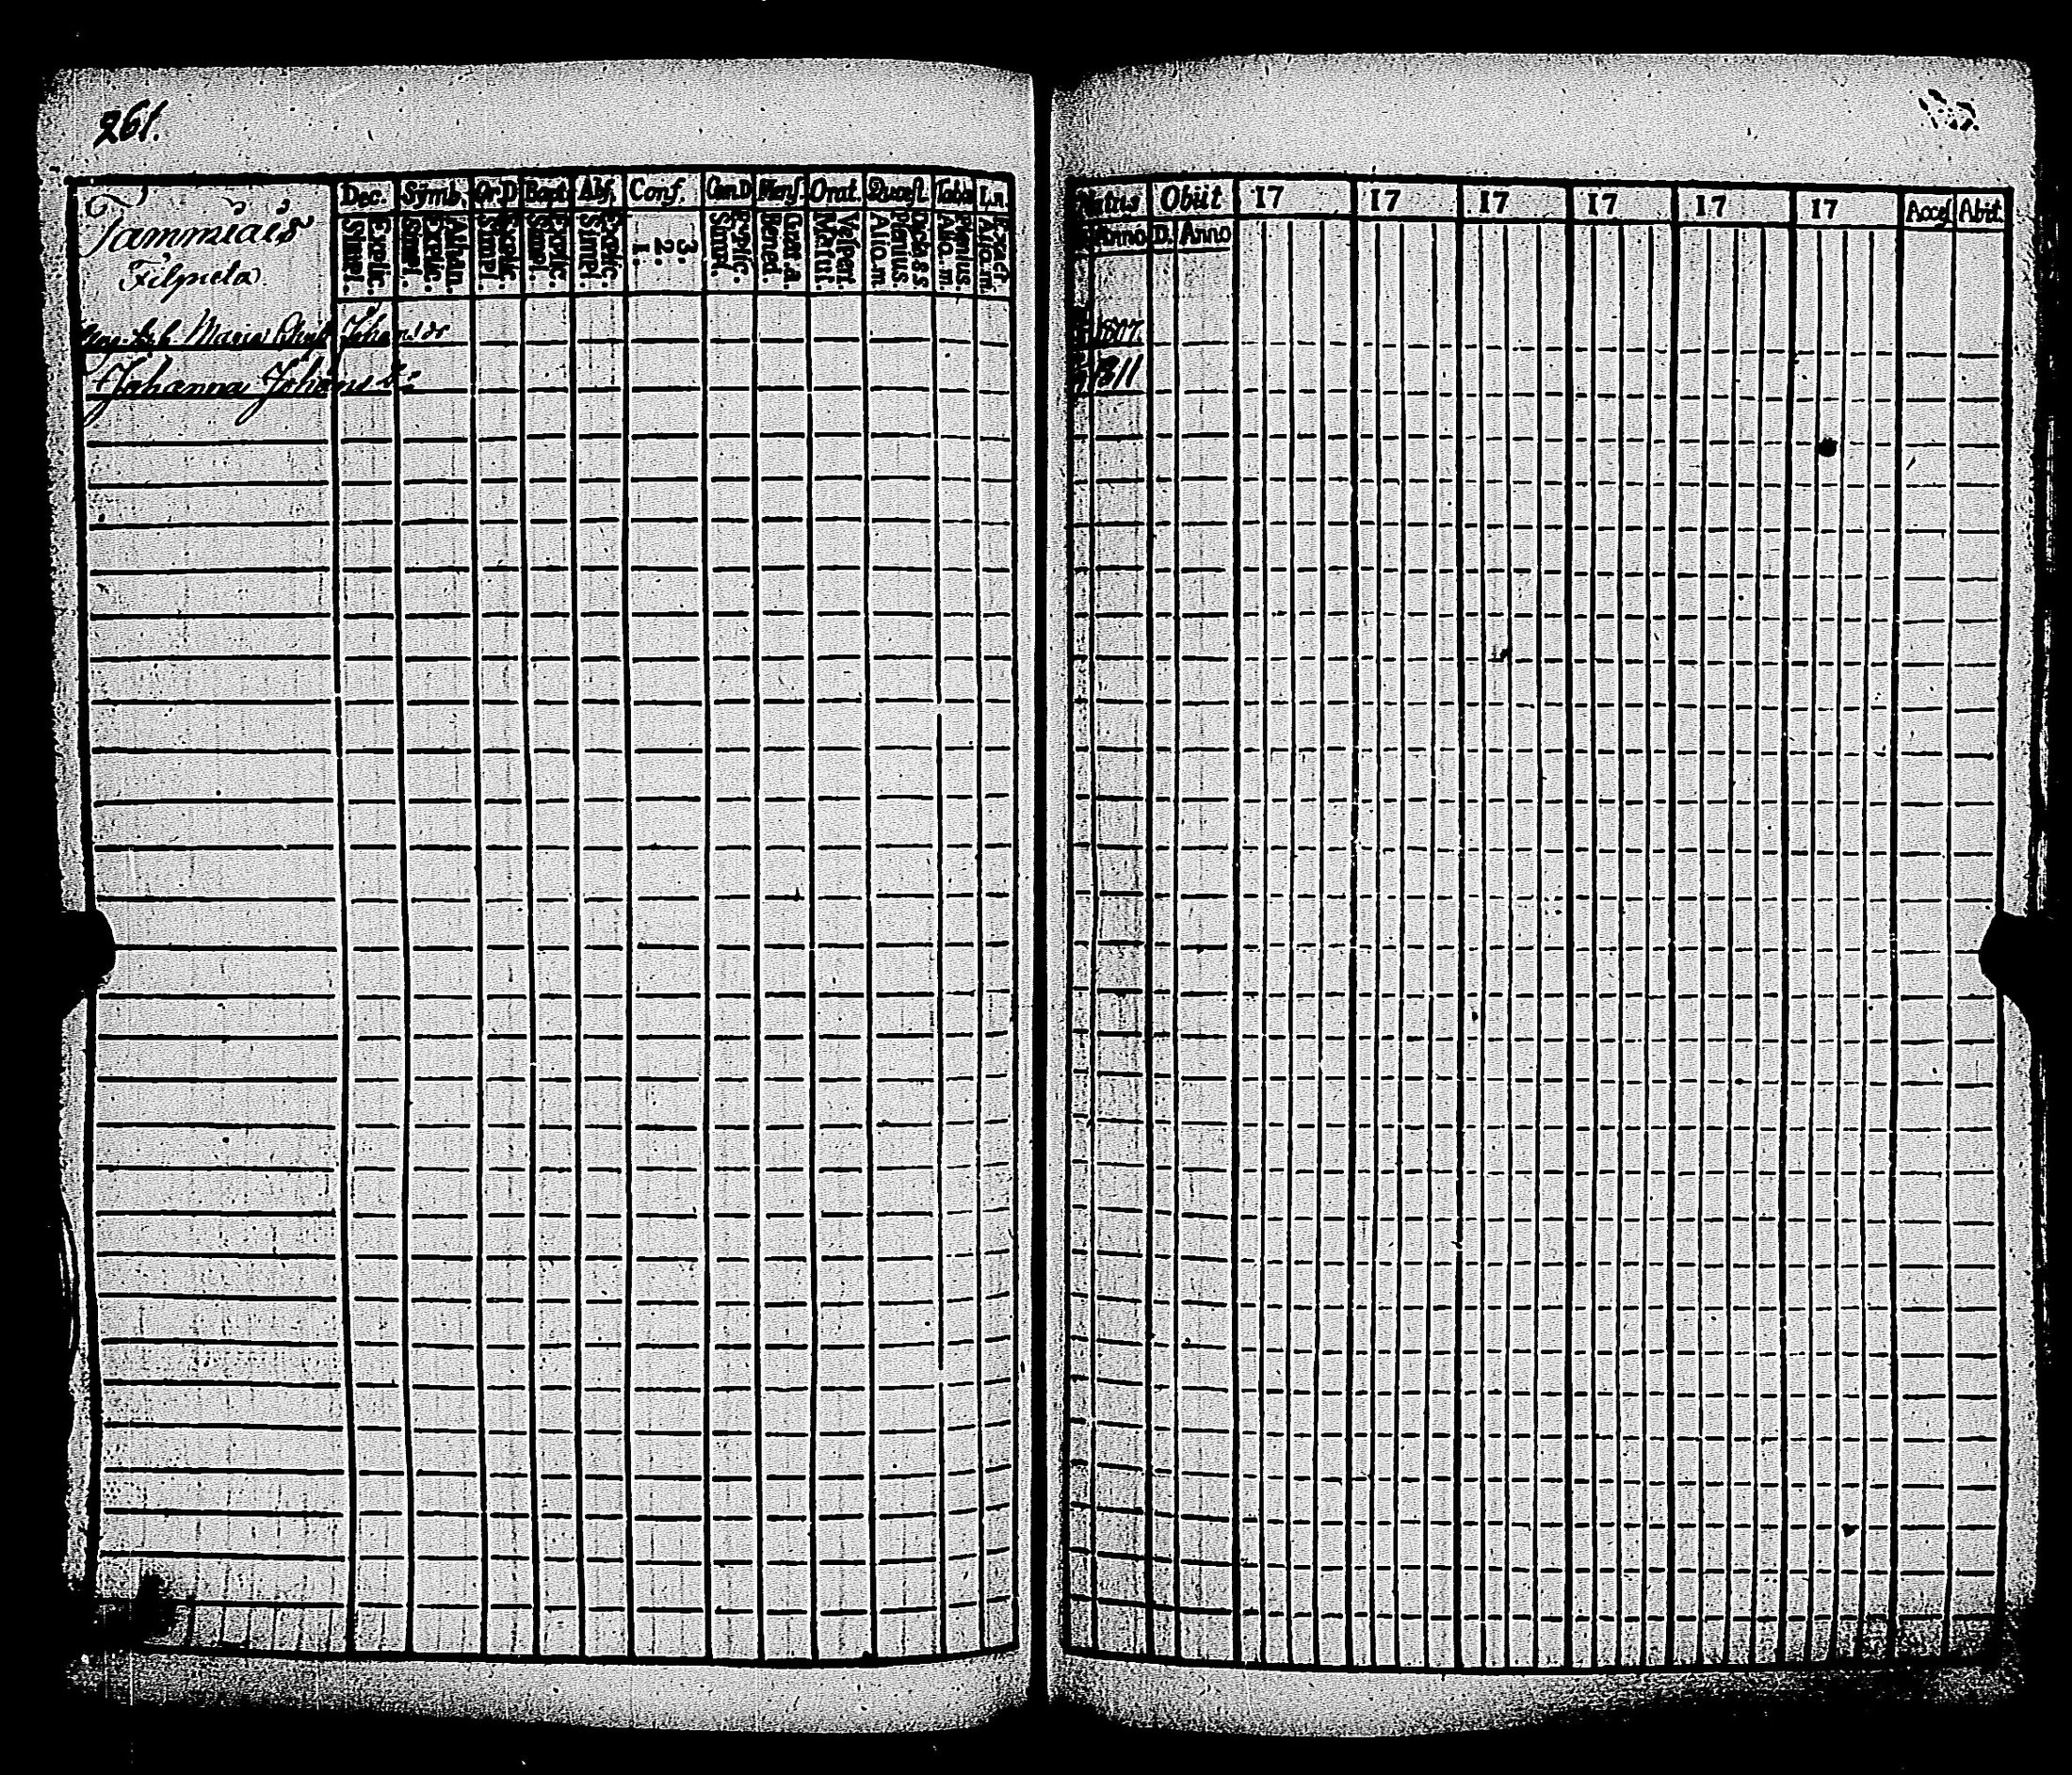 261.
Dec. Symb. Or.D Bapt. Abs. Conf. Cœn.D Mens. Orat. Quæst. Tabb. Ln.
Tammiais
Filpula
Simpl. Explic. Simpl. Explic. Athan. Simpl. Explic. Simpl. Explic. Simpl. Explic. 1. 2. 3. Simpl. Explic. Bened. Gra.a. Matut. Vespert. Alio.m. Plenius. Alio.m. Plenius. Alio.m. Exact.
Maria Johansdr
Johanna Johans dr
Natus Obiit 17 17 17 17 17 17 Access Abiit
Anno D. Anno
1807.
1811